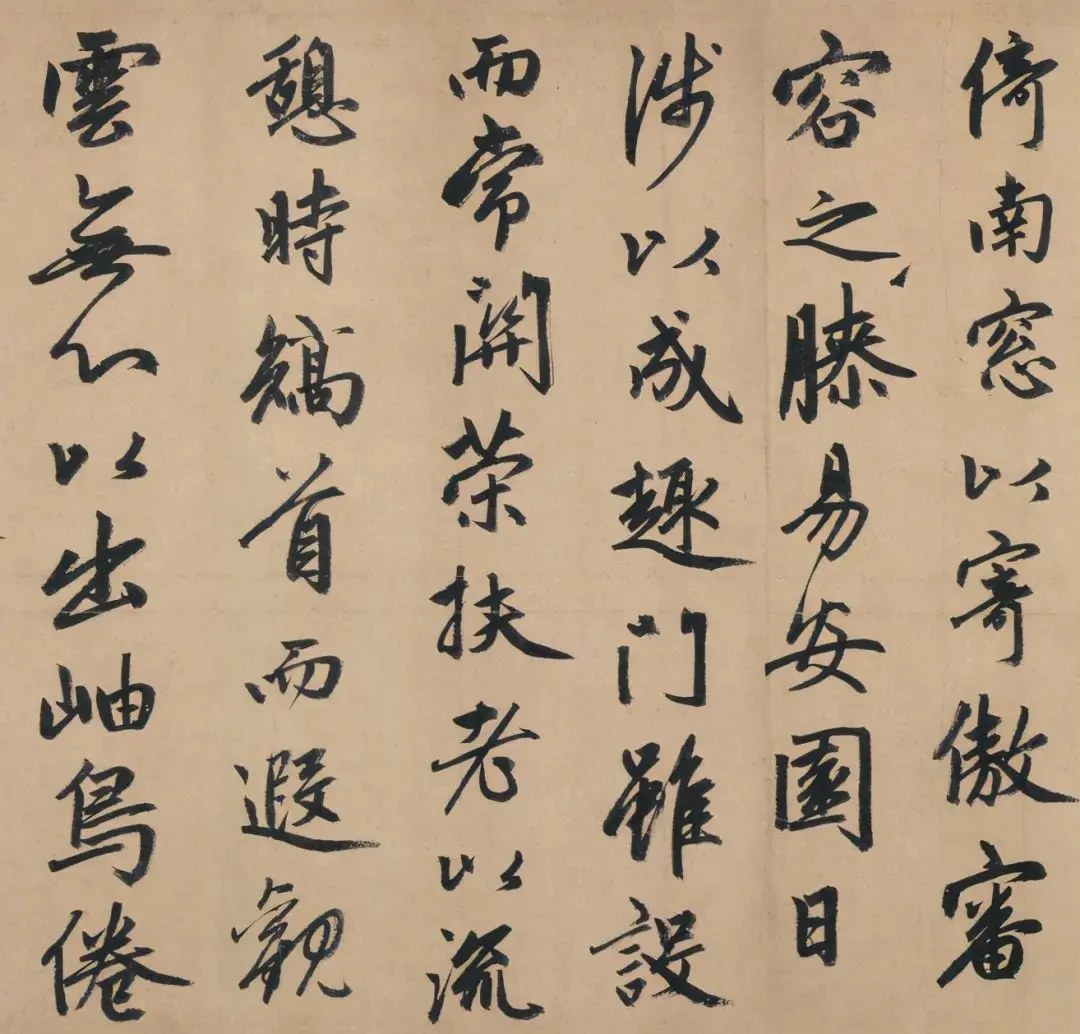 倚南窓以寄傲審
容之膝易安園日
涉以成趣門雖設
而常開榮扶老以流
憩時矯首而遐觀
雲無心以出岫鳥倦